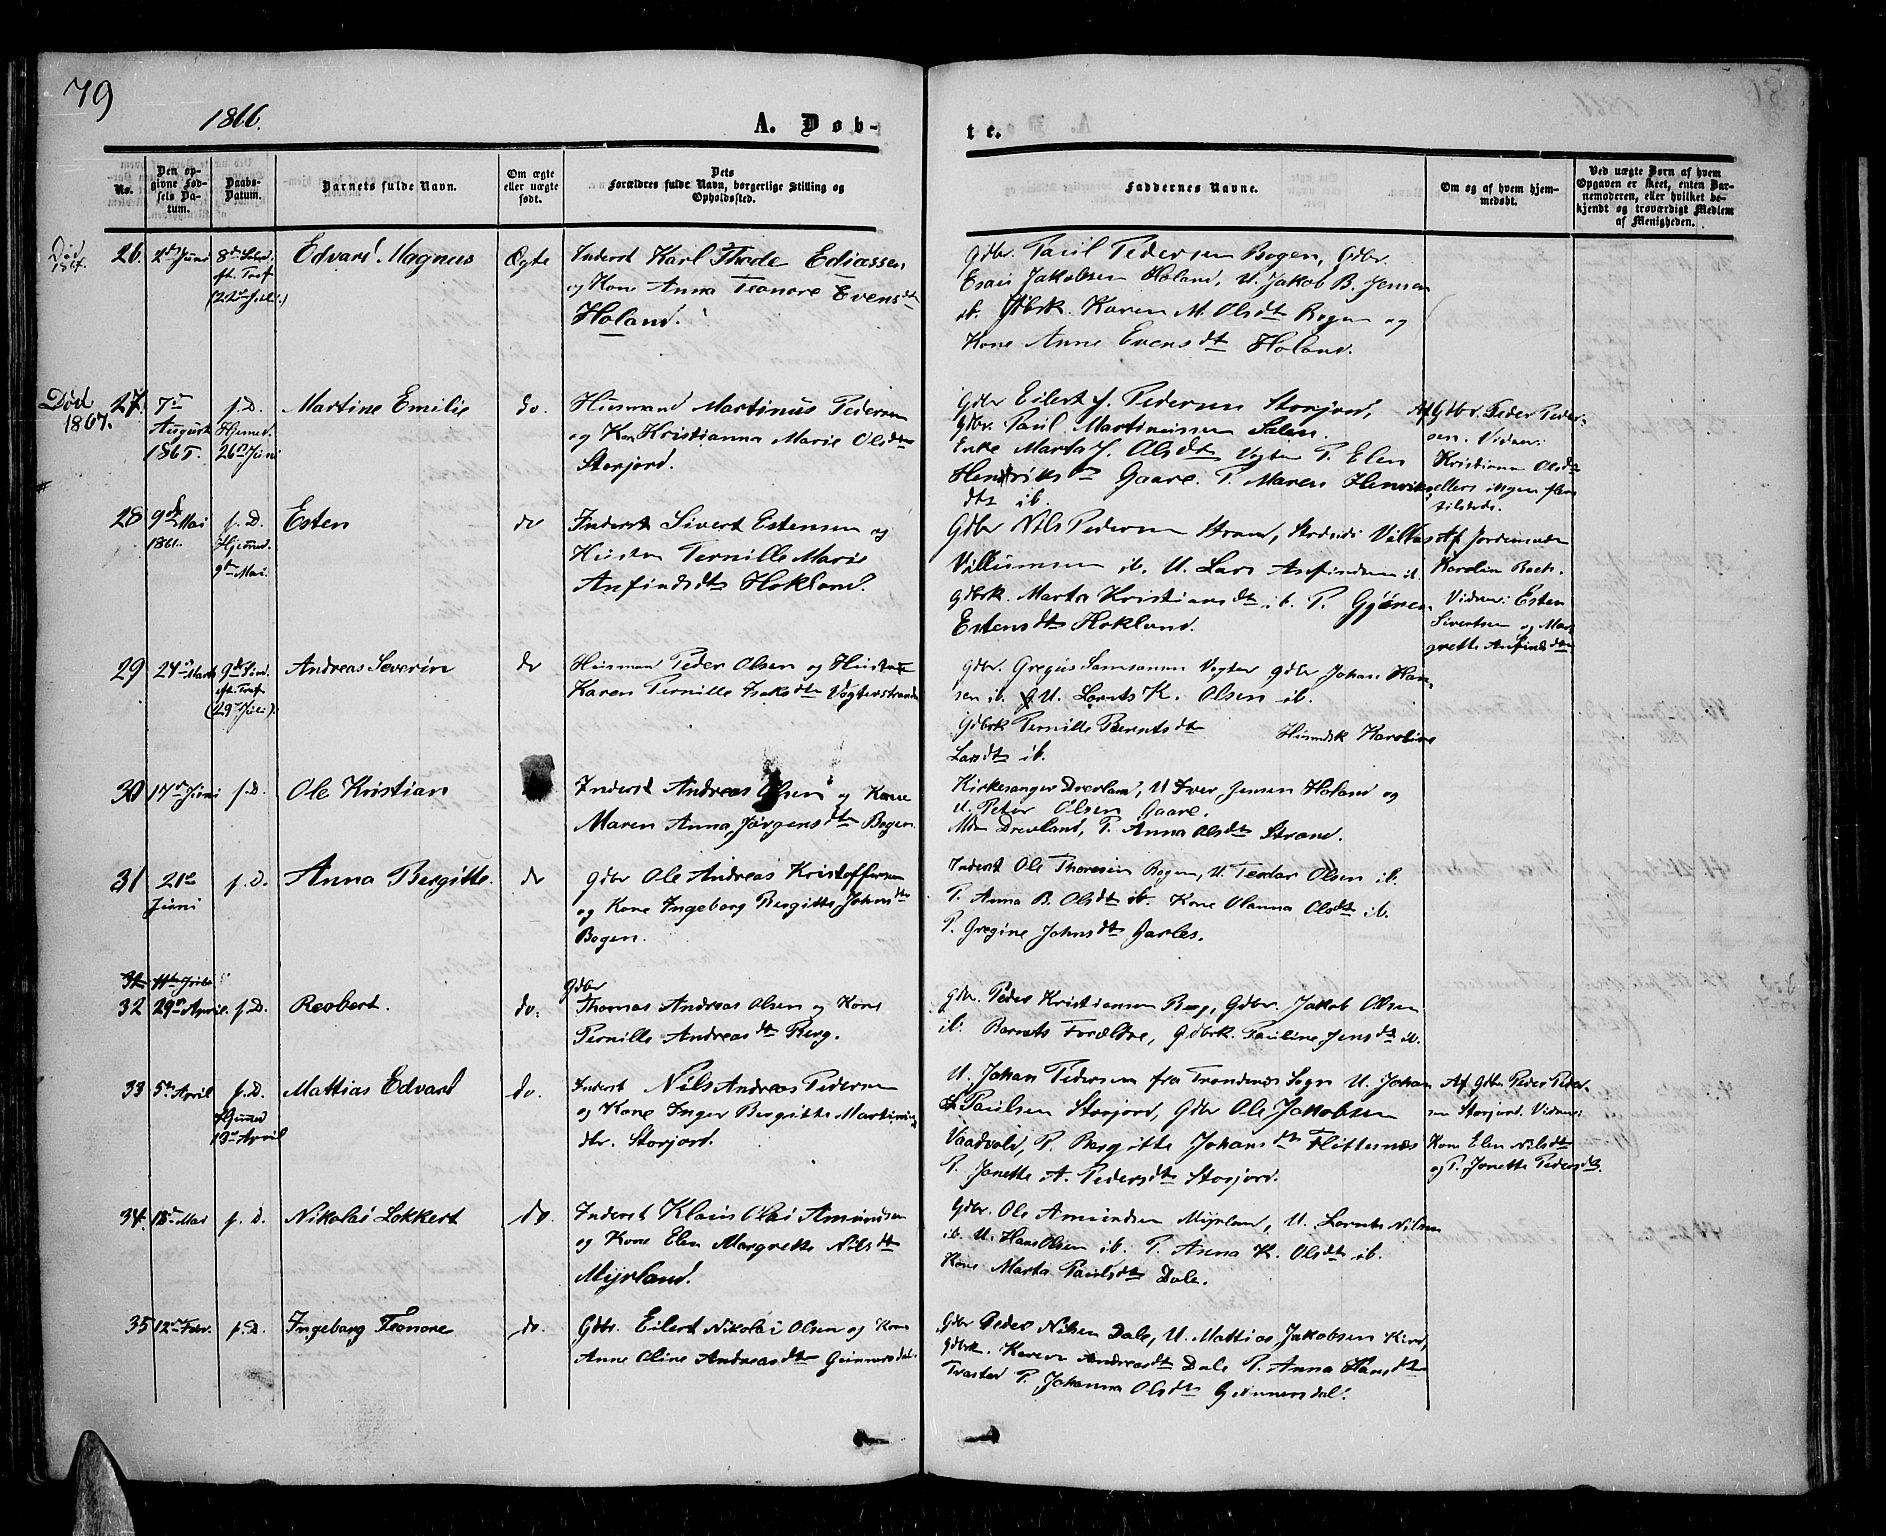 79
1866.
A. Døb-
te.
No.
Den op-
givne Fød-
sels Da-
tum.
Daabs-
Datum.
Barnets fulde Navn.
Om ægte
eller uægte
født.
Dets
Forældres fulde Navn, borgerlige Stilling og
Opholdssted.
Faddernes Navne.
Om og af hvem hjem-
medøbt.
Ved uægte Børn af hvem
Opgaven er skeet, enten Bar-
nemoderen, eller hvilket be-
kjendt og troværdigt Medlem
af Menigheden.
Død
1867.
26.
2den Juni
8de Sönd.
eft. Tref.
(22de Juli)
Edvard Magnus
Ægte
Inderst Karl Thode Ediassen
og Kone Anna Leonore Evensdtr
Holand.
Gdbr. Paul Pedersen Bogen, Gdbr.
Esais Jakobsen Holand, U. Jakob B. Jensen
ib. Gdbrk. Karen M. Olsdtr Bogen og
Kone Anne Evensdtr Holand.
Død
1867.
27.
7de
August
1865.
s. D.
Hjemed.
26de Juni
Martine Emilie
do.
Husmand Martinus Pedersen
og Kone Kristianna Marie Olsdtr
Storjord.
Gdbr Eilert J. Pedersen Storjord,
Gdbr. Paul Martinussen Salen.
Enke Marta J. Olsdtr Vogter P. Elen
Henriksdtr Gaare. P. Maren Henriks
dtr ib.
Af Gdbr. Peder Peder-
sen. Vidner:
Kristianna Olsdtr
ellers ingen flere
tilstede.
28
9de Mai
1861.
s. D.
Hjemed.
9de Mai.
Esten
do
Inderst Sivert Estensen og
Hustru Pernille Marie
Anfindsdtr Hokland.
Gdbr Nils Pedersen Strand,
Villumsen ib. U. Lars Anfindsen ib.
Gdbrk. Marta Kristiansdtr ib. P. Gjören
Estensdtr Hokland.
Af Jordemoder
Karolin Bach.
Vidner: Esten
Sivertsen og Mar-
grette Anfindsdtr
29
24de Marts
9de Sönd.
eft. Tref.
(29de Juli).
Andreas Severin
do
Husman Peder Olsen og Hustru
Karen Pernille Isaksdtr Vogterstranden
Gdbr. Gregus Samsonsen Vogter Gdbr Johan Han-
sen ib. U. Lornts K. Olsen ib.
Gdbrk Pernille Berntsdtr
Husmdsk Karoline
Larsdtr ib.
30
17de Juni
s. D.
Ole Kristian
Inderst Andreas Olsen og Kone
Maren Anna Jörgensdtr Bogen.
Kirkesanger Drevland, U. Iver Jensen Holand og
U. Peter Olsen Gaare.
Mdm Drevland, P. Anna Olsdtr Strand.
31
21de
Juni
s. D.
Anna Bergitte.
do
Gdbr Ole Andreas Kristoffersen
og Kone Ingeborg Bergitte Johnsdtr
Bogen.
Inderst Ole Thoresen Bogen, U. Teodor Olsen ib.
P. Anna B. Olsdtr ib. Kone Olanna Olsdtr ib.
P. Gregine Johnsdtr Garles.
32
29de April.
s. D.
Reobert.
do.
Gdbr
Thomas Andreas Olsen og Kone
Pernille Andreasdtr Berg.
Gdbr. Peder Kristiansen Berg, Gdbr. Jakob Olsen
ib. Barnets Forældre, Gdbrk. Pauline Jensdtr ib.
33
5te April
s. D.
Hjemed
13de April
Mattias Edvard
do.
Inderst Nils Andreas Pedersen
og Kone Inger Bergitte Martinus
dtr. Storjord.
U. Johan Pedersen fra Trondenes Sogn U. Johan
L. Paulsen Storjord, Gdbr Ole Jakobsen
Vaadvold, P. Bergitte Johansdtr Flittenæs
P. Janette A. Pedersdtr Storjord.
Af Gdbr Peder Peder-
sen Storjord. Vidner:
Kone Elen Nilsdtr
og P. Janette Pedersdtr.
34
18de Mai
s. D.
Nikolai Lokkert
do.
Inderst Klaus Olai Amundsen
og Kone Elen Margrette Nilsdtr
Myrland.
Gdbr. Ole Amundsen Myrland, U. Lornts Nilsen
ib. U. Hans Olsen ib. P. Anna K. Olsdtr ib.
Kone Marta Paulsdtr Dale.
35
12te Febr.
s. D.
Ingeborg Leonore
do.
Gdbr. Eilert Nikolai Olsen og Kone
Anne Oline Andreasdtr Gunnersdal.
Gdbr Peder Nilsen Dale, U. Mattias Jakobsen
Gdbrk. Karen Andreasdtr Dale P. Anna Hansdtr
Trasted P. Johanna Olsdtr Gunnersdal.